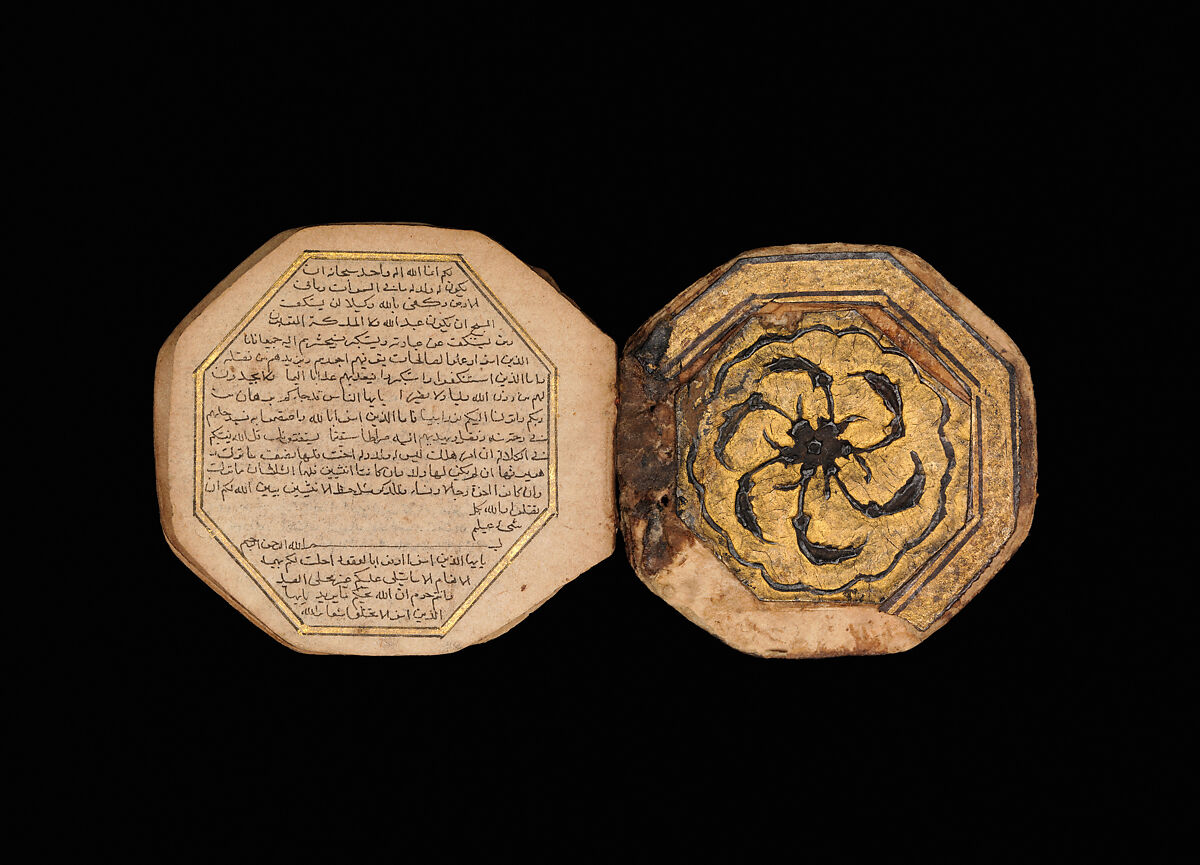 لكم انما الله اله واحد سبحانه ان
يكون له ولد له ما في السموات وما في
الارض وكفى بالله وكيلا لن يستنكف
المسيح ان يكون عبدا لله ولا الملئكة المقربون
ومن يستنكف عن عبادته ويستكبر فسيحشرهم اليه جميعا فاما
الذين امنوا وعملوا الصالحات فيوفيهم اجورهم ويزيدهم من فضله
واما الذين استنكفوا واستكبروا فيعذبهم عذابا اليما ولا يجدون
لهم من دون الله وليا ولا نصيرا يايها الناس قد جاءكم برهان من
ربكم وانزلنا اليكم نورا مبينا فاما الذين امنوا بالله واعتصموا به فسيدخلهم
في رحمة منه وفضل ويهديهم اليه صراطا مستقيما يستفتونك قل الله يفتيكم
في الكلالة ان امرؤ هلك ليس له ولد وله اخت فلها نصف ما ترك
وهو يرثها ان لم يكن لها ولد فان كانتا اثنتين فلهما الثلثان مما ترك
وان كانوا اخوة رجالا ونساء فللذكر مثل حظ الانثيين يبين الله لكم ان
تضلوا والله بكل
شيء عليم
بسم الله الرحمن الرحيم
يايها الذين امنوا اوفوا بالعقود احلت لكم بهيمة
الانعام الا ما يتلى عليكم غير محلي الصيد
وانتم حرم ان الله يحكم ما يريد يايها
الذين امنوا لا تحلوا شعائر الله